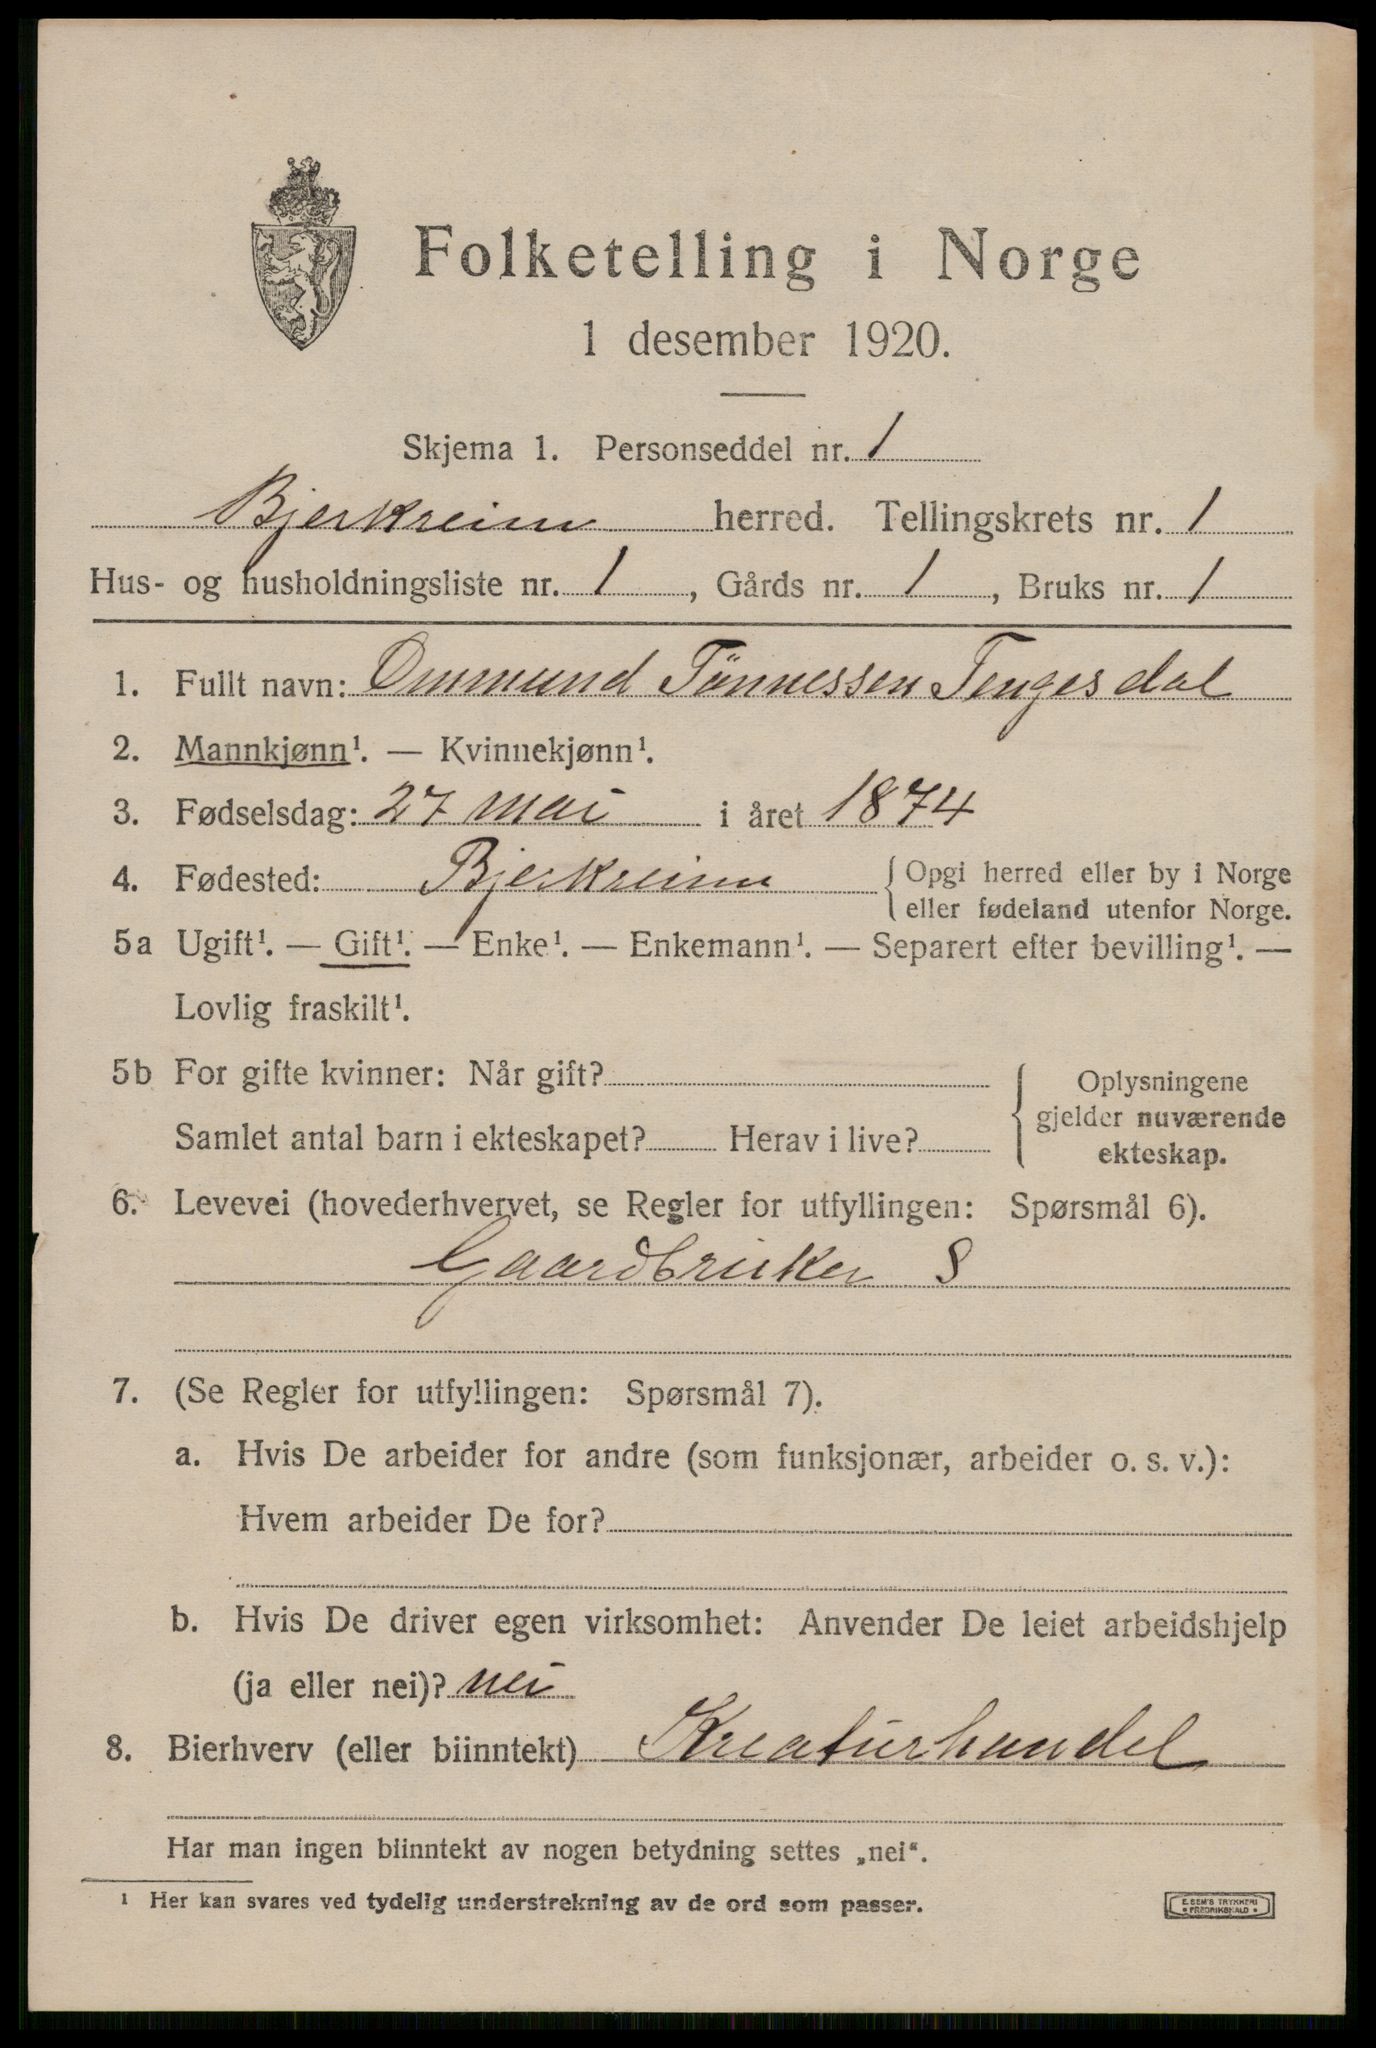 Folketelling i Norge
1 desember 1920.
Skjema 1. Personseddel nr. 1
Bjerkreim herred. Tellingskrets nr. 1
Hus- og husholdningsliste nr. 1, Gårds nr. 1, Bruks nr. 1
1. Fullt navn: Ommund Tönnessen Tengesdal
2. Mannkjønn¹. — Kvinnekjønn¹.
3. Fødselsdag: 27 mai i året 1874
4. Fødested: Bjerkreim { Opgi herred eller by i Norge
eller fødeland utenfor Norge.
5a Ugift¹. — Gift¹. — Enke¹. — Enkemann¹. — Separert efter bevilling¹. —
Lovlig fraskilt¹.
5b For gifte kvinner: Når gift?
Samlet antal barn i ekteskapet? Herav i live?
{ Oplysningene
gjelder nuværende
ekteskap.
6. Levevei (hovederhvervet, se Regler for utfyllingen: Spørsmål 6).
Gaardbruker S
7. (Se Regler for utfyllingen: Spørsmål 7).
a. Hvis De arbeider for andre (som funksjonær, arbeider o. s. v.):
Hvem arbeider De for?
b. Hvis De driver egen virksomhet: Anvender De leiet arbeidshjelp
(ja eller nei)? nei
8. Bierhverv (eller biinntekt) Kreaturhandel
Har man ingen biinntekt av nogen betydning settes „nei“.
¹ Her kan svares ved tydelig understrekning av de ord som passer.
E. SEM'S TRYKKERI
• FREDRIKSHALD •